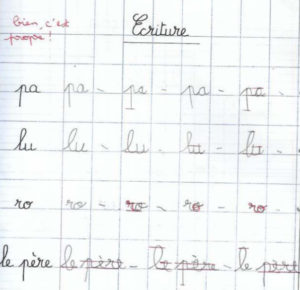 bien, c'est
propre !
Ecriture
pa pa - pa - pa - pa -
lu lu - lu - lu - lu -
ro ro - ro - ro - ro -
le père le père - le père - le père